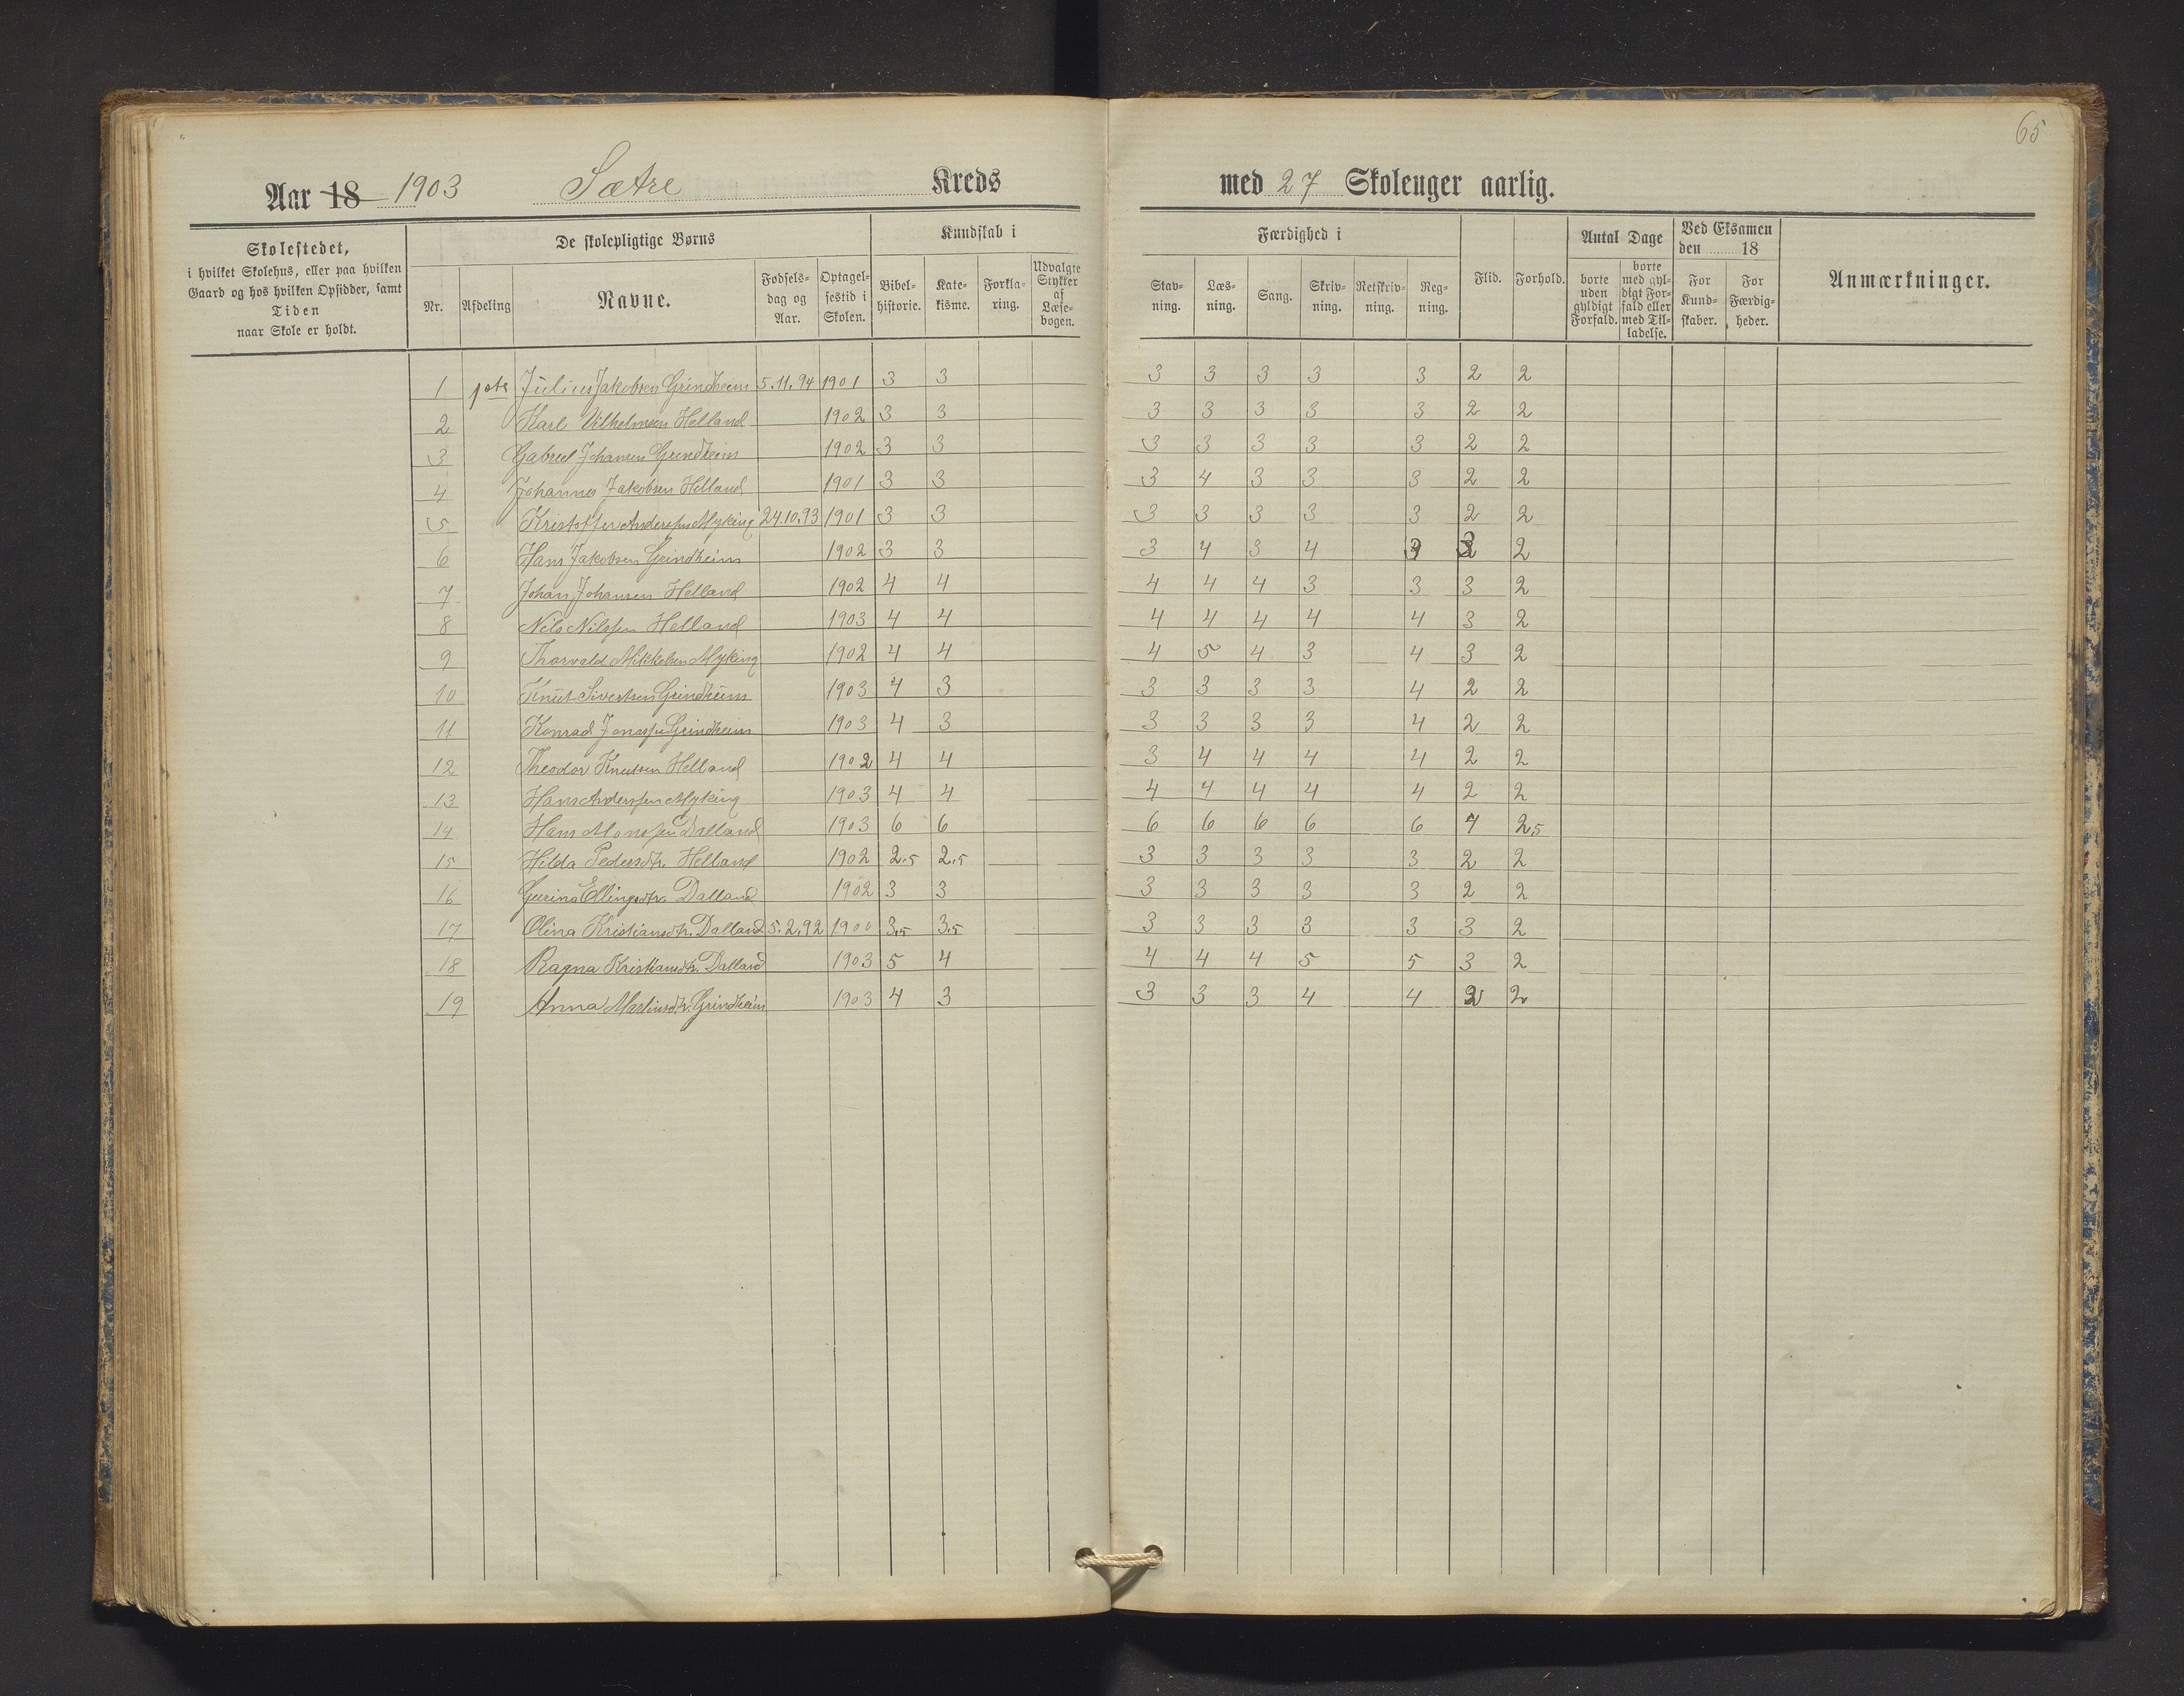 65
Aar 18 1903 Sætre Kreds med 27 Skoleuger aarlig.
Skolestedet, i hvilket Skolehus, eller paa hvilken Gaard og hos hvilken Opsidder, samt Tiden naar Skole er holdt.
De skolepligtige Børns
Kundskab i
Færdighed i
Antal Dage
Ved Eksamen den 18
Nr. Afdeling Navne. Fødsels-dag og Aar. Optagel-sestid i Skolen. Bibel-historie. Kate-kisme. Forkla-ring. Udvalgte Stykker af Læse-bogen. Stav-ning. Læs-ning. Sang. Skriv-ning. Retskriv-ning. Reg-ning. Flid. Forhold. borte uden gyldigt Forfald. borte med gyl-digt For-fald eller med Til-ladelse. For Kund-skaber. For Færdig-heder. Anmærkninger.
1 1ste Julius Jakobsen Grindheim 5.11.94 1901 3 3 3 3 3 3 3 2 2
2 Karl Vilhelmsen Helland 1902 3 3 3 3 3 3 3 2 2
3 Gabriel Johansen Grindheim 1902 3 3 3 3 3 3 3 2 2
4 Johannes Jakobsen Helland 1901 3 3 3 4 3 3 3 2 2
5 Kristoffer Anderssen Myking 24.10.93 1901 3 3 3 3 3 3 3 2 2
6 Hans Jakobsen Grindheim 1902 3 3 3 4 3 4 2
7 Johan Johansen Helland 1902 4 4 4 4 4 3 3 3 2
8 Nils Nilssen Helland 1903 4 4 4 4 4 4 4 3 2
9 Thorvald Mikkelsen Myking 1902 4 4 4 5 4 3 4 3 2
10 Knut Sivertsen Grindheim 1903 4 3 3 3 3 3 4 2 2
11 Konrad Jonassen Grindheim 1903 4 3 3 3 3 3 4 2 2
12 Theodor Knutsen Helland 1902 4 4 3 4 4 4 4 2 2
13 Hans Anderssen Myking 1903 4 4 4 4 4 4 4 2 2
14 Hans Monssen Dalland 1903 6 6 6 6 6 6 6 4 2,5
15 Hilda Pedersdtr. Helland 1902 2,5 2,5 3 3 3 3 3 2 2
16 Gurina Ellingsdtr. Dalland 1902 3 3 3 3 3 3 3 2 2
17 Olina Kristiansdtr. Dalland 5.2.92 1900 3,5 3,5 3 3 3 3 3 3 2
18 Ragna Kristiansdtr. Dalland 1903 5 4 4 4 4 5 5 3 2
19 Anna Martinsdtr. Grindheim 1903 4 3 3 3 3 4 4 2